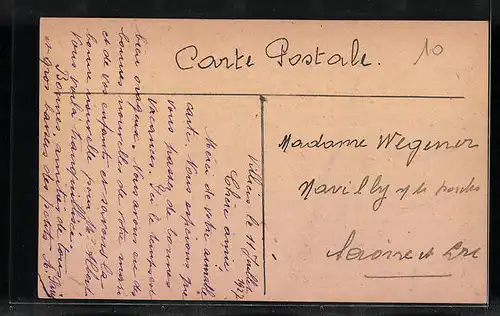 Carte Postale.
10
Villiers le 11 Juillet
Chère amie,
Merci de votre aimable
carte. Nous espérons que
vous passez de bonnes
vacances.
bien orageux. Nous avons eu de
bonnes nouvelles de votre mari
et de vos enfants et savons la
bonne nouvelle pour
Vous voilà tranquillisée.
Bonnes amitiés de tous
et gros baisers des petits
Madame Wegener
Navilly s/ le Doubs
Saône et Loire